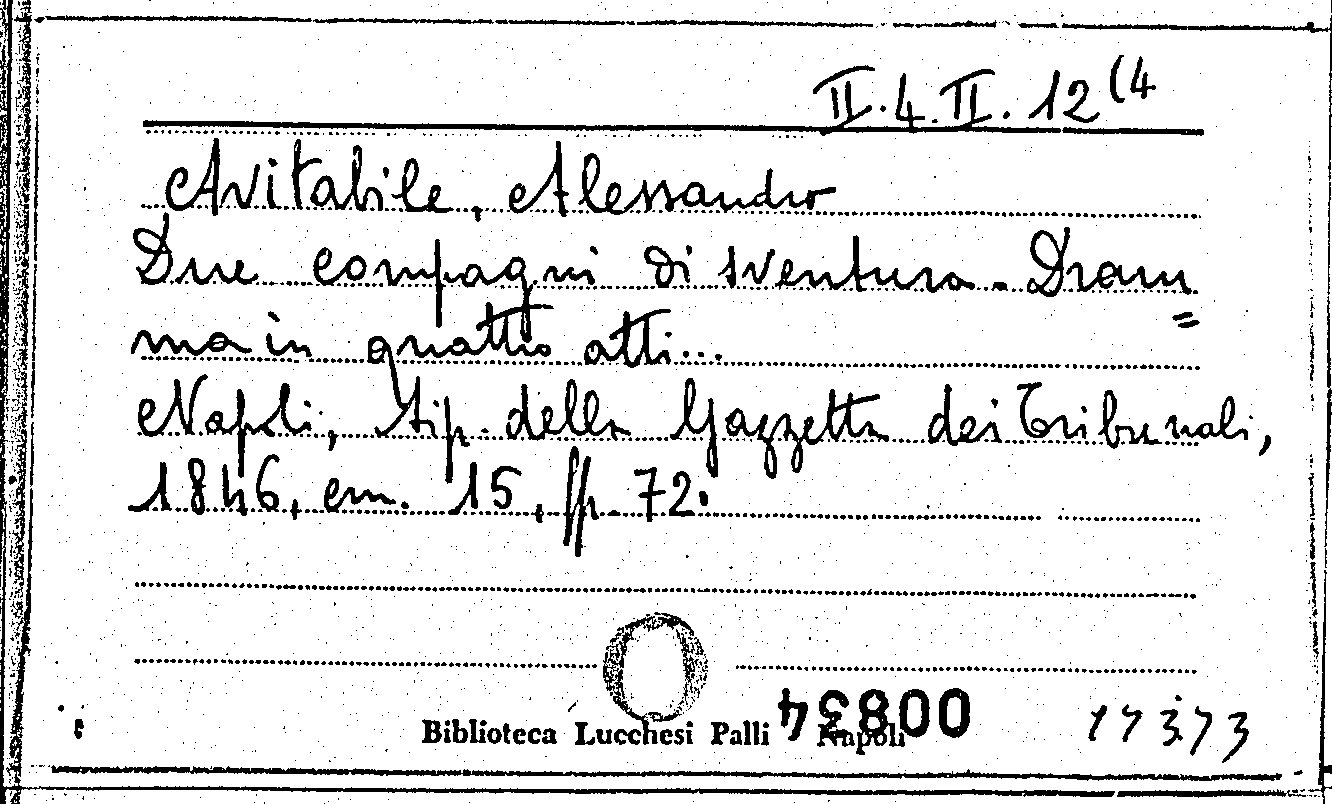 II.4.II.12(4
Avitabile, Alessandro
Due compagni di sventura. Dram=
ma in quattro atti...
Napoli, tip. della Gazzetta dei Tribunali,
1846, cm. 15, pp. 72.
Biblioteca Lucchesi Palli Napoli
00834